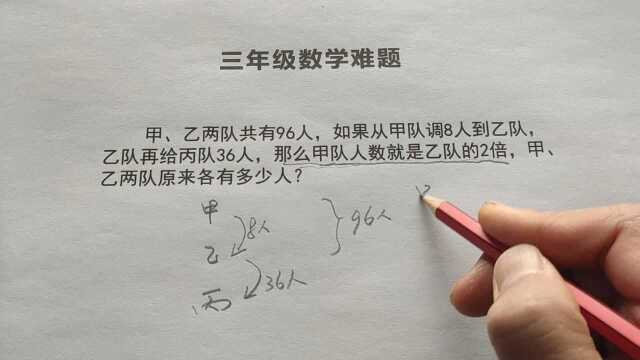 三年级数学难题
甲、乙两队共有96人，如果从甲队调8人到乙队，
乙队再给丙队36人，那么甲队人数就是乙队的2倍，甲、
乙两队原来各有多少人？
甲
8人
乙
96人
36人
丙